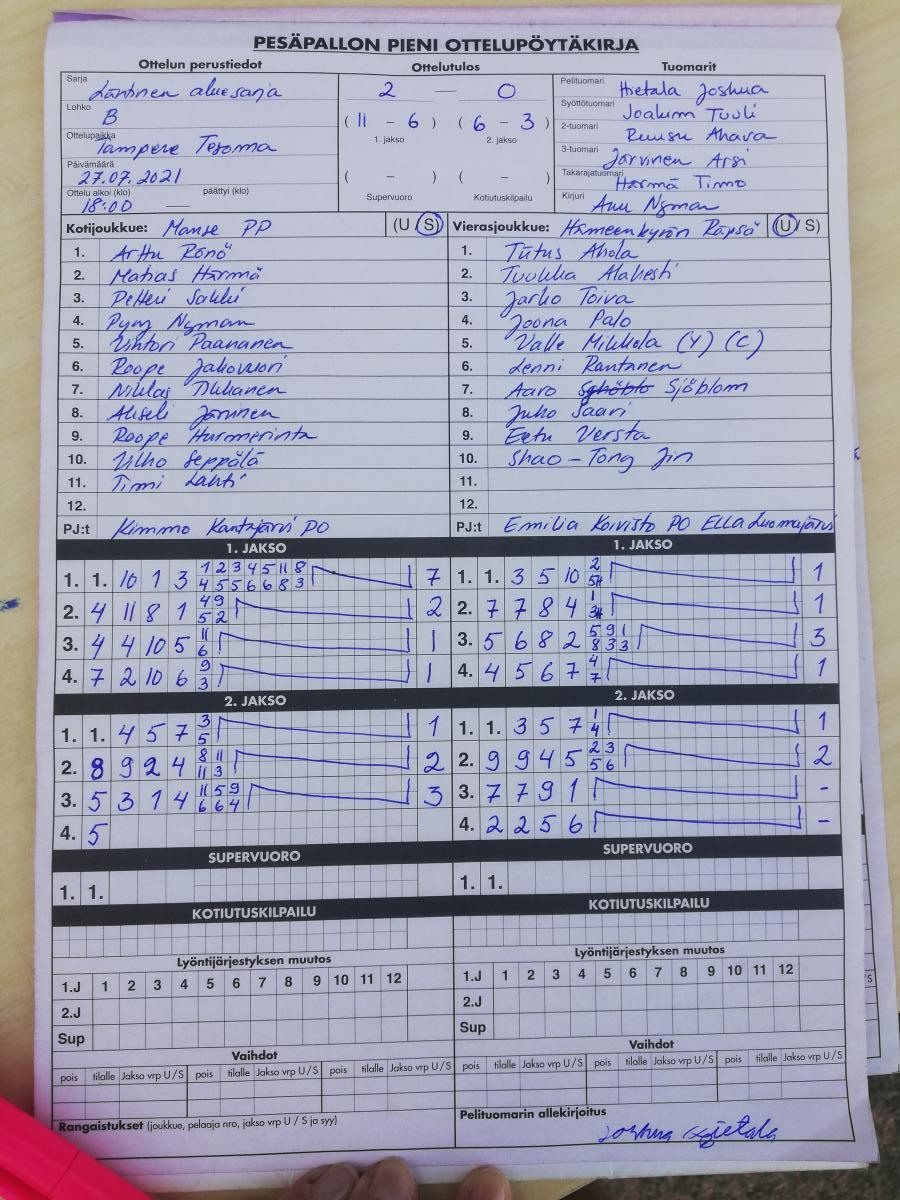 PESÄPALLON PIENI OTTELUPÖYTÄKIRJA
Ottelun perustiedot Ottelutulos Tuomarit
Sarja Läntinen aluesarja
Lohko B
Ottelupaikka Tampere Tesoma
Päivämäärä 27.07.2021
Ottelu alkoi (klo) päättyi (klo)
18:00 —
2 — 0
( 11 - 6 ) ( 6 - 3 )
1. jakso 2. jakso
( - ) ( - )
Supervuoro Kotiutuskilpailu
Pelituomari Hietala Joshua
Syöttötuomari Joakim Tuuli
2-tuomari Ruusu Ahava
3-tuomari Järvinen Arsi
Takarajatuomari Härmä Timo
Kirjuri Anu Nyman
Kotijoukkue: Manse PP (U / S)
1. Arttu Rönö
2. Matias Härmä
3. Petteri Sakki
4. Pyry Nyman
5. Vihtori Paananen
6. Roope Jakovuori
7. Niklas Tikkanen
8. Akseli Järvinen
9. Roope Hurmerinta
10. Vilho Seppälä
11. Timi Lahti
12.
PJ:t Kimmo Kantajärvi PO
Vierasjoukkue: Hämeenkyrön Räpsä (U / S)
1. Tiitus Ahola
2. Tuukka Alahesti
3. Jarko Toiva
4. Joona Palo
5. Valle Mikkola (Y) (C)
6. Lenni Rantanen
7. Aaro Sjöblom
8. Juho Saari
9. Eetu Versta
10. Shao-Tong Jin
11.
12.
PJ:t Emilia Koivisto PO Ella Luomajärvi
1. JAKSO
1. 1. 10 1 3 1 2 3 4 5 11 8 7
4 5 5 6 6 8 3
2. 4 11 8 1 4 9 2
5 2
3. 4 4 10 5 11 1
6
4. 7 2 10 6 9 1
3
1. JAKSO
1. 1. 3 5 10 2 1
2. 7 7 8 4 1 1
3. 5 6 8 2 5 9 1 3
8 3 3
4. 4 5 6 7 4 1
7
2. JAKSO
1. 1. 4 5 7 3 1
5
2. 8 9 2 4 8 11 2
11 3
3. 5 3 1 4 11 5 9 3
6 6 4
4. 5
2. JAKSO
1. 1. 3 5 7 1 1
4
2. 9 9 4 5 2 3 2
5 6
3. 7 7 9 1 -
4. 2 2 5 6 -
SUPERVUORO SUPERVUORO
1. 1. 1. 1.
KOTIUTUSKILPAILU KOTIUTUSKILPAILU
Lyöntijärjestyksen muutos Lyöntijärjestyksen muutos
1.J 1 2 3 4 5 6 7 8 9 10 11 12 1.J 1 2 3 4 5 6 7 8 9 10 11 12
2.J 2.J
Sup Sup
Vaihdot Vaihdot
pois tilalle Jakso vrp U / S pois tilalle Jakso vrp U / S pois tilalle Jakso vrp U / S pois tilalle Jakso vrp U / S pois tilalle Jakso vrp U / S pois tilalle Jakso vrp U / S
Rangaistukset (joukkue, pelaaja nro, jakso vrp U / S ja syy) Pelituomarin allekirjoitus
Joshua Hietala